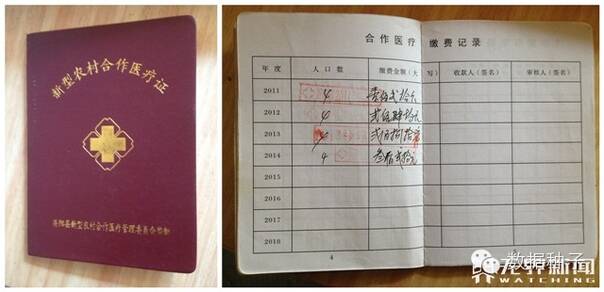 新型农村合作医疗证
阳县新型农村合作医疗管理委员会
合作医疗 缴费记录
年度 人口数 缴费金额(大写) 收款人(签名) 审核人(签名)
2011 4 壹佰弍拾元
2012 4 弍佰肆拾元
2013 4 弍佰捌拾元
2014 4 叁佰弍拾元
2015
2016
2017
2018
4
数据种子
新闻
WATCHING